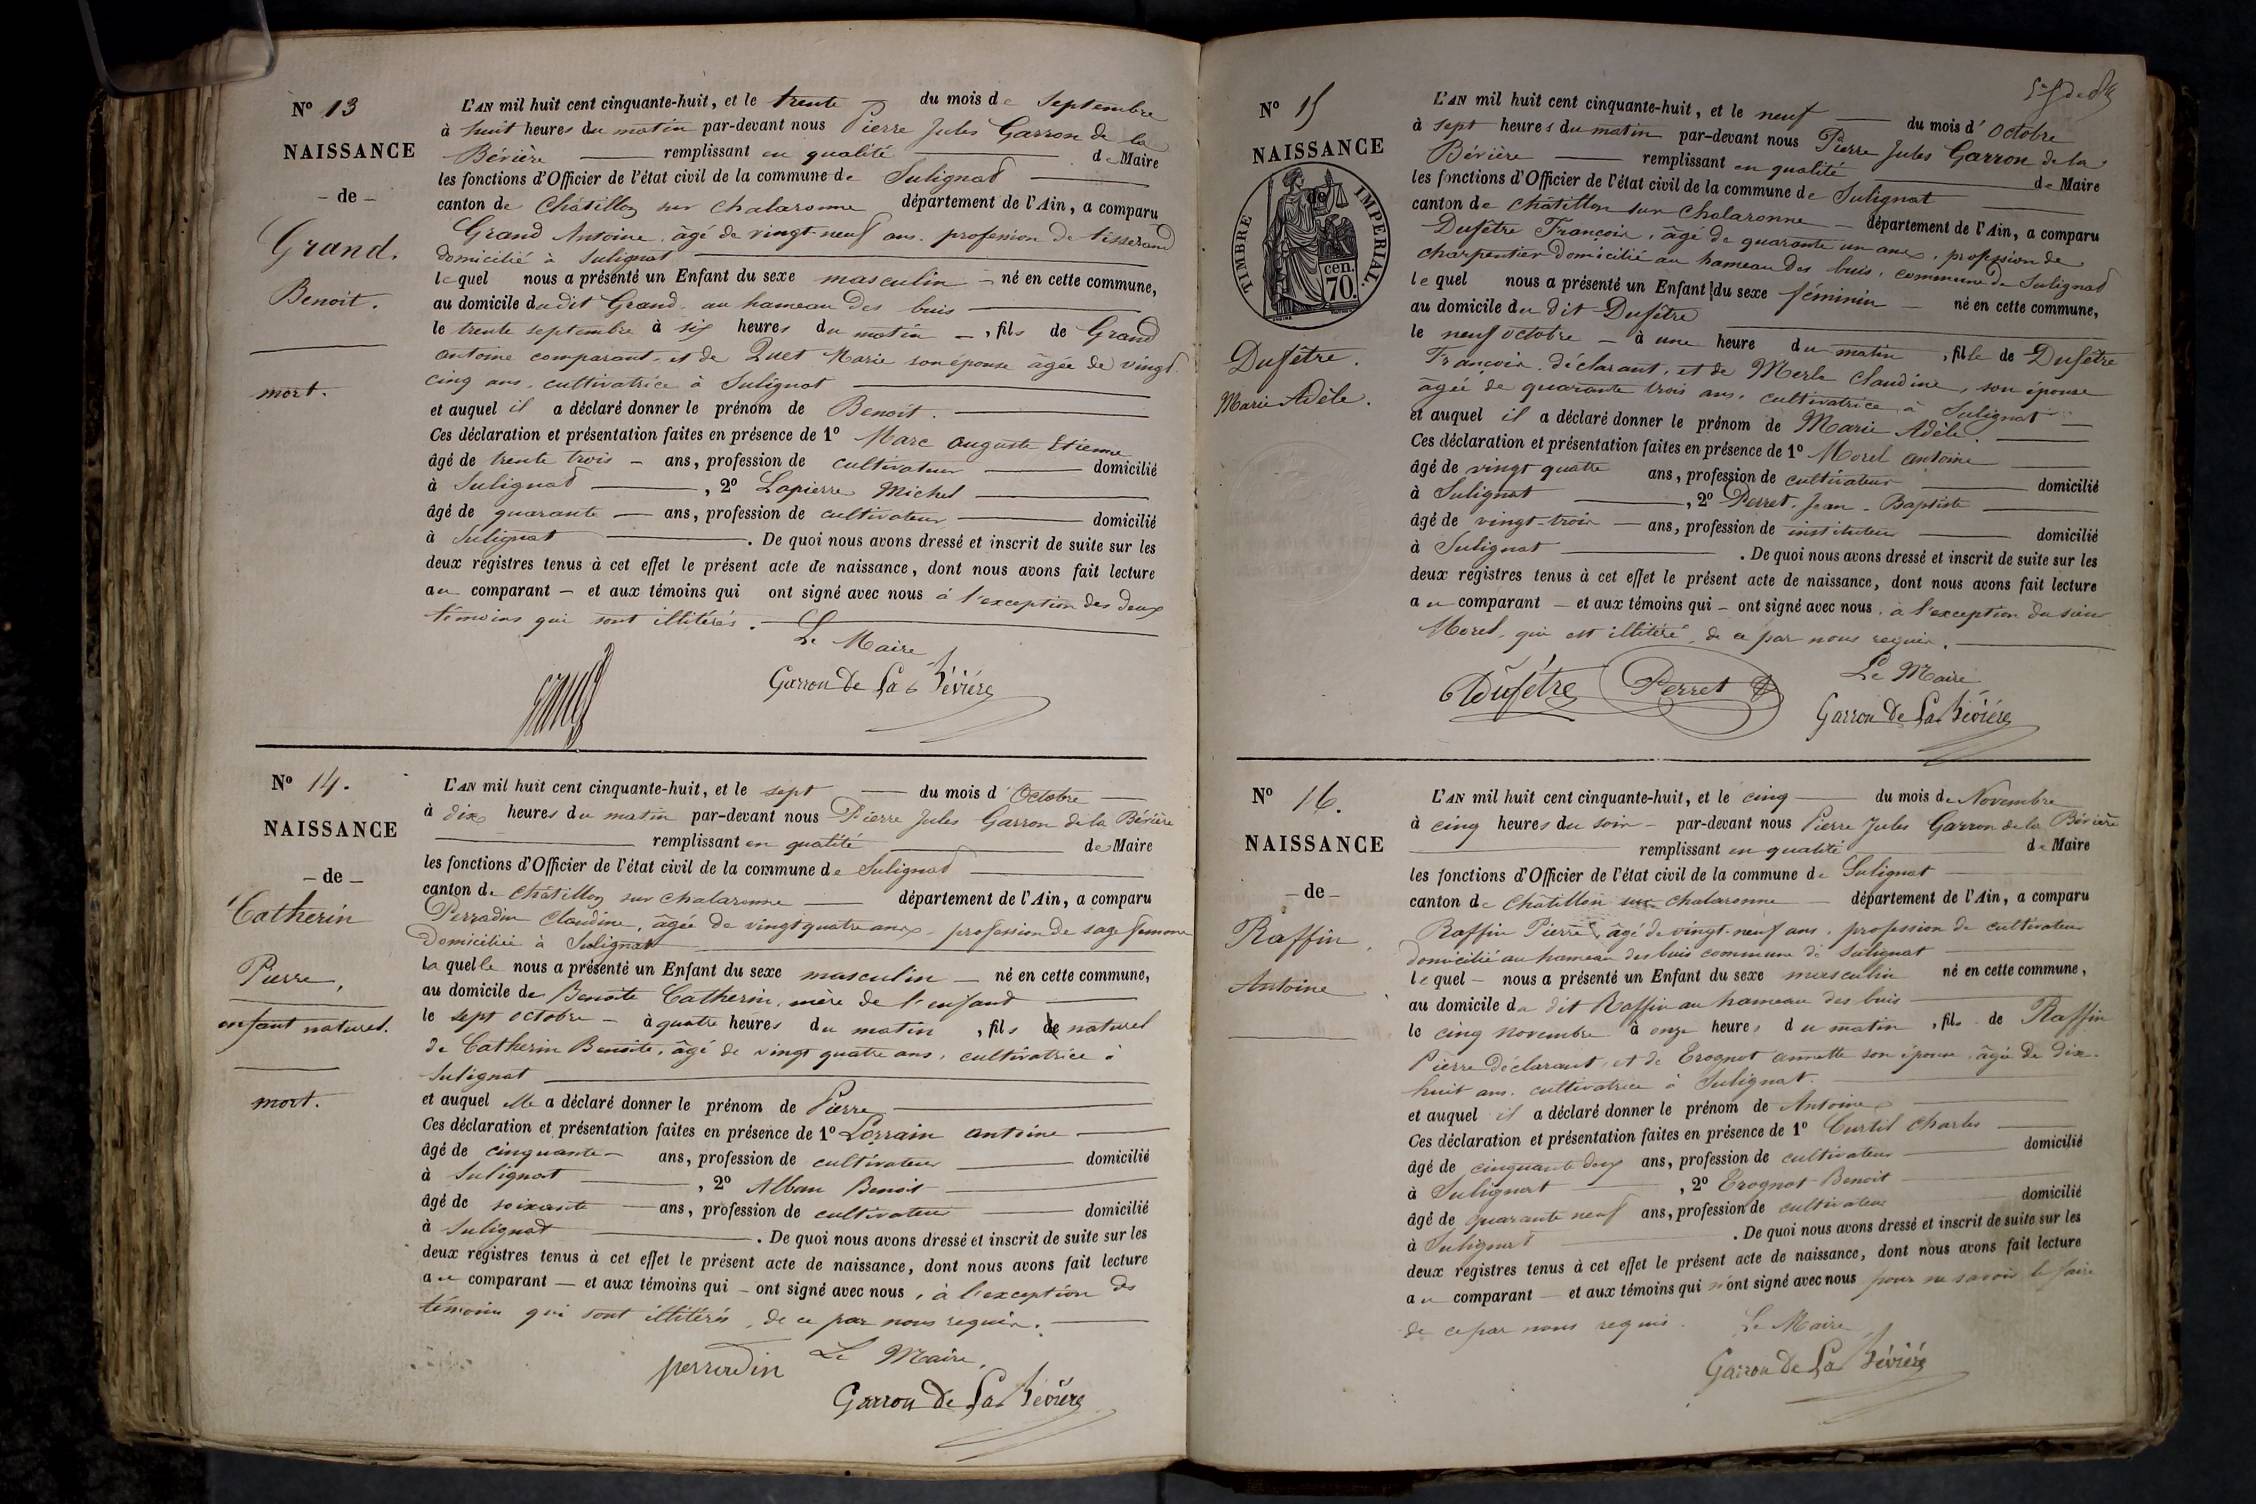 N° 13
NAISSANCE
- de -
Grand.
Benoit.
mort.
L'AN mil huit cent cinquante-huit, et le trente du mois de Septembre
à huit heures du matin par-devant nous Pierre Jules Garron de la
Bévière remplissant en qualité de Maire
les fonctions d'Officier de l'état civil de la commune de Sulignat
canton de Châtillon sur Chalaronne département de l'Ain, a comparu
Grand Antoine, âgé de vingt-neuf ans, profession de tisserand
domicilié à Sulignat
lequel nous a présenté un Enfant du sexe masculin né en cette commune,
au domicile dudit Grand au hameau des buis
le trente septembre à six heures du matin, fils de Grand
antoine comparant, et de Quet Marie son épouse âgée de vingt
cinq ans, cultivatrice à Sulignat
et auquel il a déclaré donner le prénom de Benoit.
Ces déclaration et présentation faites en présence de 1° Marc auguste Etienne
âgé de trente trois ans, profession de cultivateur domicilié
à Sulignat, 2° Lapierre Michel
âgé de quarante ans, profession de cultivateur domicilié
à Sulignat. De quoi nous avons dressé et inscrit de suite sur les
deux registres tenus à cet effet le présent acte de naissance, dont nous avons fait lecture
au comparant et aux témoins qui ont signé avec nous à l'exception des deux
témoins qui sont illitérés.
Le Maire
Garron De La Bévière
N° 14.
NAISSANCE
- de -
Catherin
Pierre,
enfant naturel.
mort.
L'AN mil huit cent cinquante-huit, et le sept du mois d'Octobre
à dix heures du matin par-devant nous Pierre Jules Garron de la Bévière
remplissant en qualité de Maire
les fonctions d'Officier de l'état civil de la commune de Sulignat
canton de Châtillon sur chalaronne département de l'Ain, a comparu
Perradin Claudine, âgée de vingt quatre ans, profession de sage femme
Domiciliée à Sulignat
laquelle nous a présenté un Enfant du sexe masculin né en cette commune,
au domicile de Benoite Catherin, mère de l'enfant
le sept octobre à quatre heures du matin, fils de naturel
de Catherin Benoite, âgé de vingt quatre ans, cultivatrice à
Sulignat
et auquel elle a déclaré donner le prénom de Pierre
Ces déclaration et présentation faites en présence de 1° Lorrain antoine
âgé de cinquante ans, profession de cultivateur domicilié
à Sulignat, 2° Alban Benoit
âgé de soixante ans, profession de cultivateur domicilié
à Sulignat. De quoi nous avons dressé et inscrit de suite sur les
deux registres tenus à cet effet le présent acte de naissance, dont nous avons fait lecture
au comparant et aux témoins qui ont signé avec nous, à l'exception des
témoins qui sont illitérés, de ce par nous requis.
perradin Le Maire,
Garron De La Bévière
N° 15
NAISSANCE
de
TIMBRE IMPERIAL.
cen.
70.
Dufêtre.
Marie Adèle.
L'AN mil huit cent cinquante-huit, et le neuf du mois d'Octobre
à sept heures du matin par-devant nous Pierre Jules Garron de la
Bévière remplissant en qualité de Maire
les fonctions d'Officier de l'état civil de la commune de Sulignat
canton de Châtillon sur Chalaronne département de l'Ain, a comparu
Dufêtre François, âgé de quarante un ans, profession de
charpentier Domicilié au hameau Des buis, commune de Sulignat
lequel nous a présenté un Enfant du sexe féminin né en cette commune,
au domicile du dit Dufêtre
le neuf octobre à une heure du matin, fille de Dufêtre
François, déclarant, et de Merle Claudine, son épouse
âgée de quarante trois ans, cultivatrice à Sulignat
et auquel il a déclaré donner le prénom de Marie Adèle.
Ces déclaration et présentation faites en présence de 1° Morel antoine
âgé de vingt quatre ans, profession de cultivateur domicilié
à Sulignat, 2° Perret, Jean-Baptiste
âgé de vingt-trois ans, profession de instituteur domicilié
à Sulignat. De quoi nous avons dressé et inscrit de suite sur les
deux registres tenus à cet effet le présent acte de naissance, dont nous avons fait lecture
au comparant et aux témoins qui ont signé avec nous, à l'exception du sieur
Morel, qui est illitéré, de ce par nous requis.
Dufêtre Perret Le Maire
Garron De La Bévière
N° 16.
NAISSANCE
- de -
Raffin,
Antoine
L'AN mil huit cent cinquante-huit, et le cinq du mois de Novembre
à cinq heures du soir par-devant nous Pierre Jules Garron de la Bévière
remplissant en qualité de Maire
les fonctions d'Officier de l'état civil de la commune de Sulignat
canton de Châtillon sur chalaronne département de l'Ain, a comparu
Raffin Pierre, âgé de vingt-neuf ans, profession de cultivateur
domicilié au hameau des buis commune de Sulignat
lequel nous a présenté un Enfant du sexe masculin né en cette commune,
au domicile du dit Raffin au hameau des buis
le cinq novembre à onze heures du matin, fils de Raffin
Pierre déclarant, et de Trognot annette son épouse, âgée de dix-
huit ans, cultivatrice à Sulignat.
et auquel il a déclaré donner le prénom de Antoine
Ces déclaration et présentation faites en présence de 1° Curtil Charles
âgé de cinquante deux ans, profession de cultivateur domicilié
à Sulignat, 2° Trognot Benoit
âgé de quarante neuf ans, profession de cultivateur domicilié
à Sulignat. De quoi nous avons dressé et inscrit de suite sur les
deux registres tenus à cet effet le présent acte de naissance, dont nous avons fait lecture
au comparant et aux témoins qui n'ont signé avec nous pour ne savoir le faire
de ce par nous requis. Le Maire
Garron De La Bévière